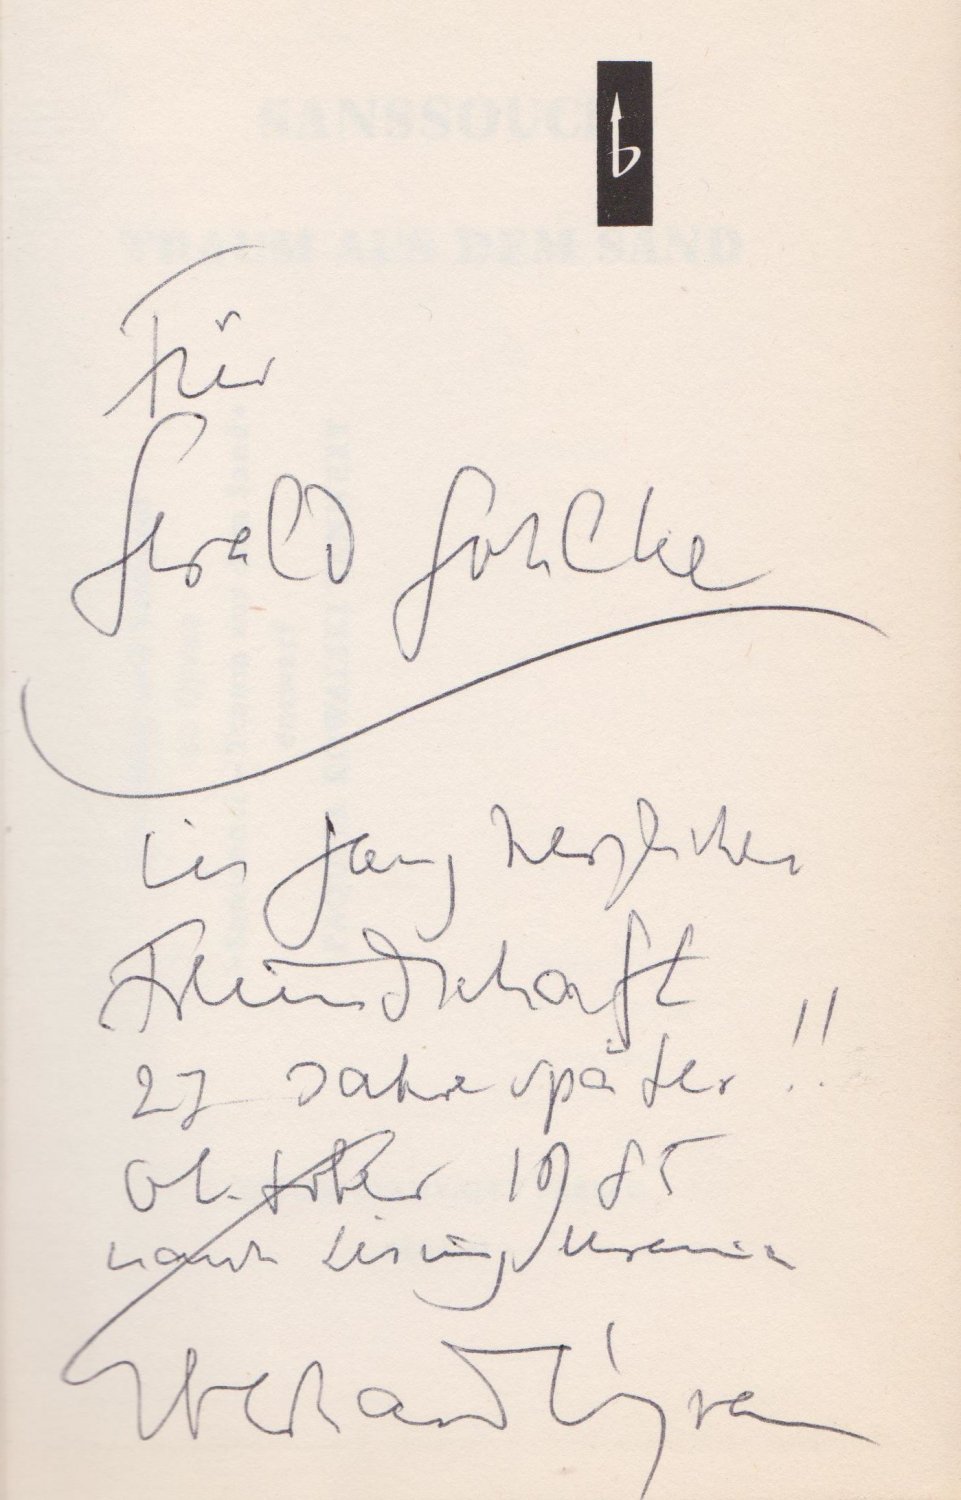 SANSSOUCI
TRAUM AUS DEM SAND
b
Für
Gerald Gohlke
in ganz herzlicher
Freundschaft
27 Jahre später !!
Oktober 1985
nach Lesung Urania
Eberhard Cyran